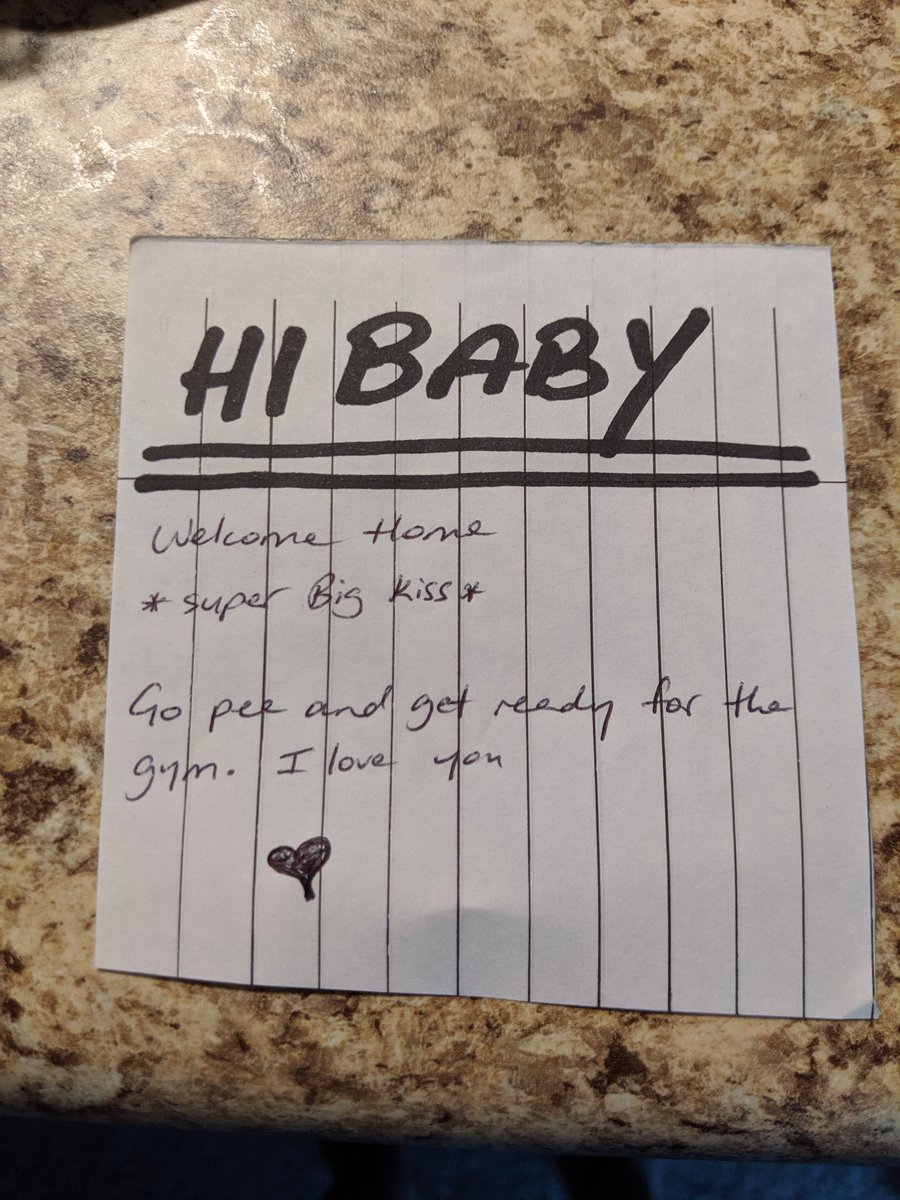 HI BABY
Welcome Home
*super Big Kiss*
Go pee and get ready for the
gym. I love you